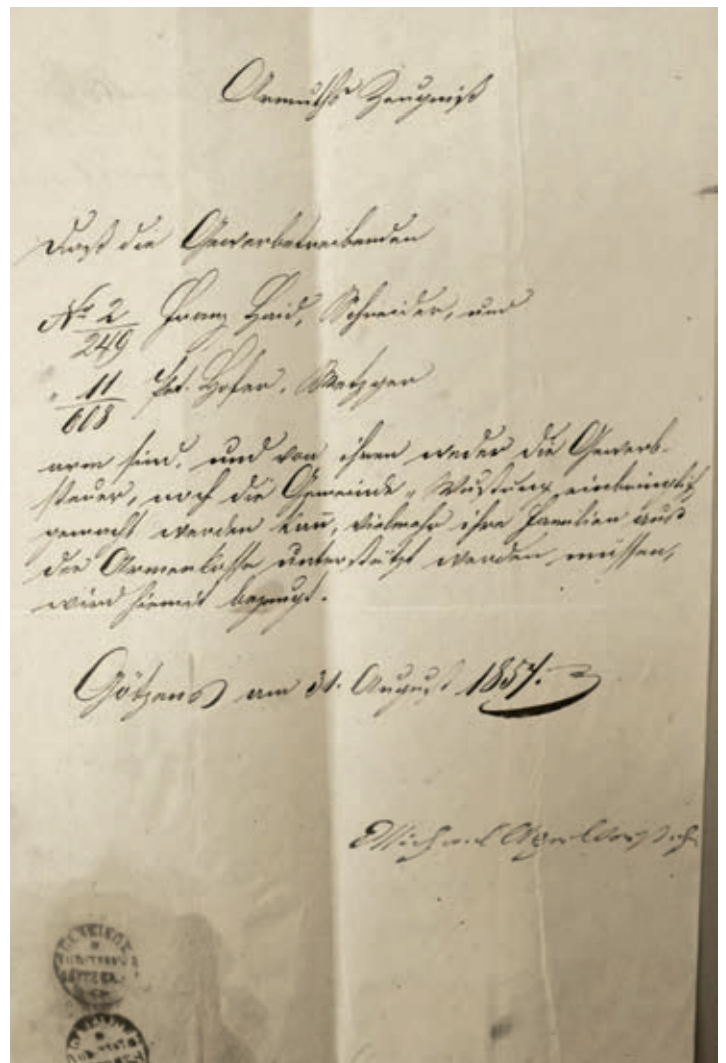 Armuths Zeugniß
Daß die Gewerbetreibenden
No 2/249 Franz Haid, Schneider, und
" 11/608 Hofer, Metzger
arm sind, und von ihnen weder die Gewerb-
steuer, noch die Gemeinde einbringlich
gemacht werden kañ, vielmehr ihre Familien aus
der Armenkasse unterstützt werden müssen,
wird hiemit bezeugt.
Götzens am 31. August 1857.
Michael